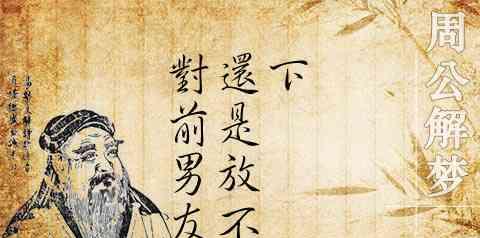 周公解梦
下
還是放不
對前男友